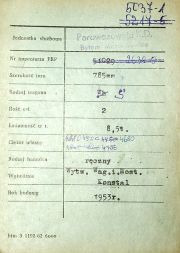 5037-1
5217-5
Jednostka służbowa
Parowozownia P.D.
Nr inwentarza PKP
Szerokość toru 785mm
Rodzaj wagonu S
Ilość osi 2
Ładowność w t. 8,5t.
Ciężar własny
Rodzaj hamulca ręczny
Wytwórnia Wytw. Wag.i.Most.
Konstal
Rok budowy 1953r.